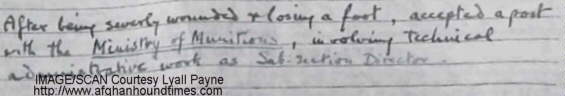 After being severly wounded & losing a foot, accepted a post
with the Ministry of Munitions, involving technical
administrative work as Sub-section Director.
IMAGE/SCAN Courtesy Lyall Payne
http://www.afghanhoundtimes.com